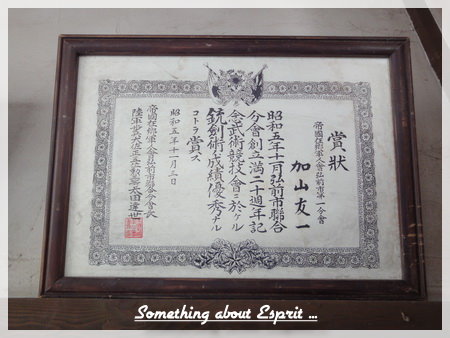 賞狀
帝國在郷軍人會弘前市第一分會
加山友一
昭和五年十一月弘前市聯合
分會創立滿二十週年記
念武術競技會ニ於ケル
銃劍術成績優秀ナル
コトヲ賞ス
昭和五年十一月三日
帝國在郷軍人會弘前市聯合分會長
陸軍步兵 太田
Something about Esprit ...